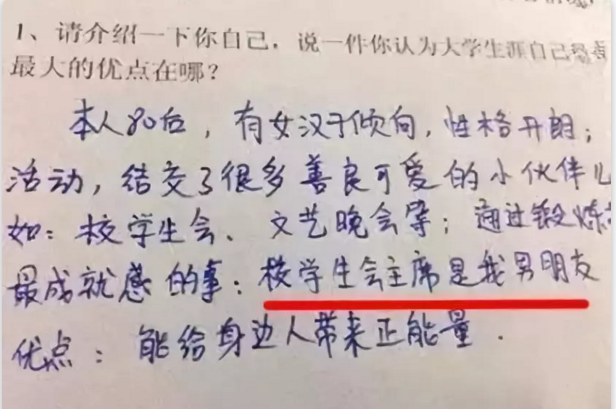 1、请介绍一下你自己，说一件你认为大学生涯自己最
最大的优点在哪？
本人90后，有女汉子倾向，性格开朗；
活动，结交了很多善良可爱的小伙伴儿
如：校学生会、文艺晚会等；通过锻炼
最成就感的事：校学生会主席是我男朋友
优点：能给身边人带来正能量．